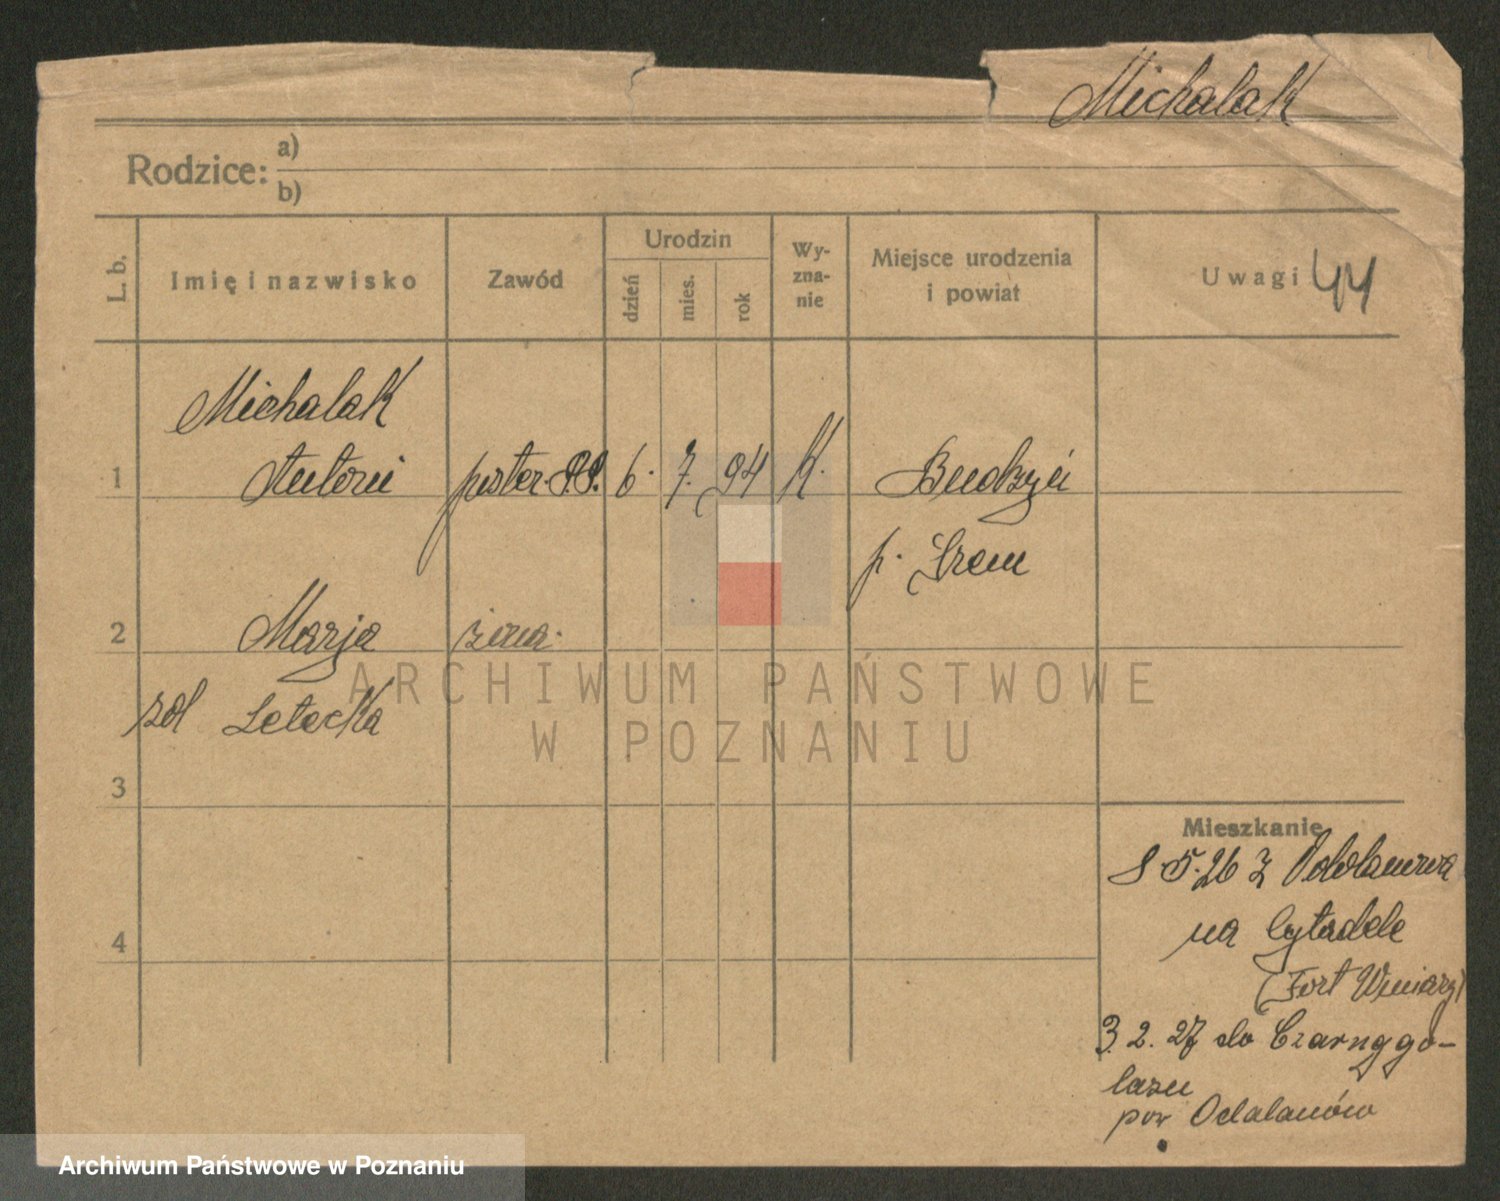 Michalak
Rodzice: a)
b)
L. b.
Imię i nazwisko
Zawód
Urodzin
dzień
mies.
rok
Wy-
zna-
nie
Miejsce urodzenia
i powiat
Uwagi 44
Michalak
1 Antoni poster. P.P. 6. 7. 94 K. Budzyń
p. Śrem
2 Marja żona.
zd Letecka
ARCHIWUM PAŃSTWOWE
W POZNANIU
3
Mieszkanie
8.5.26 z Odolanowa
na Cytadele
4
(Fort Winiary)
3.2.27 do Czarnygo-
lasu
pow Odalanów
Archiwum Państwowe w Poznaniu